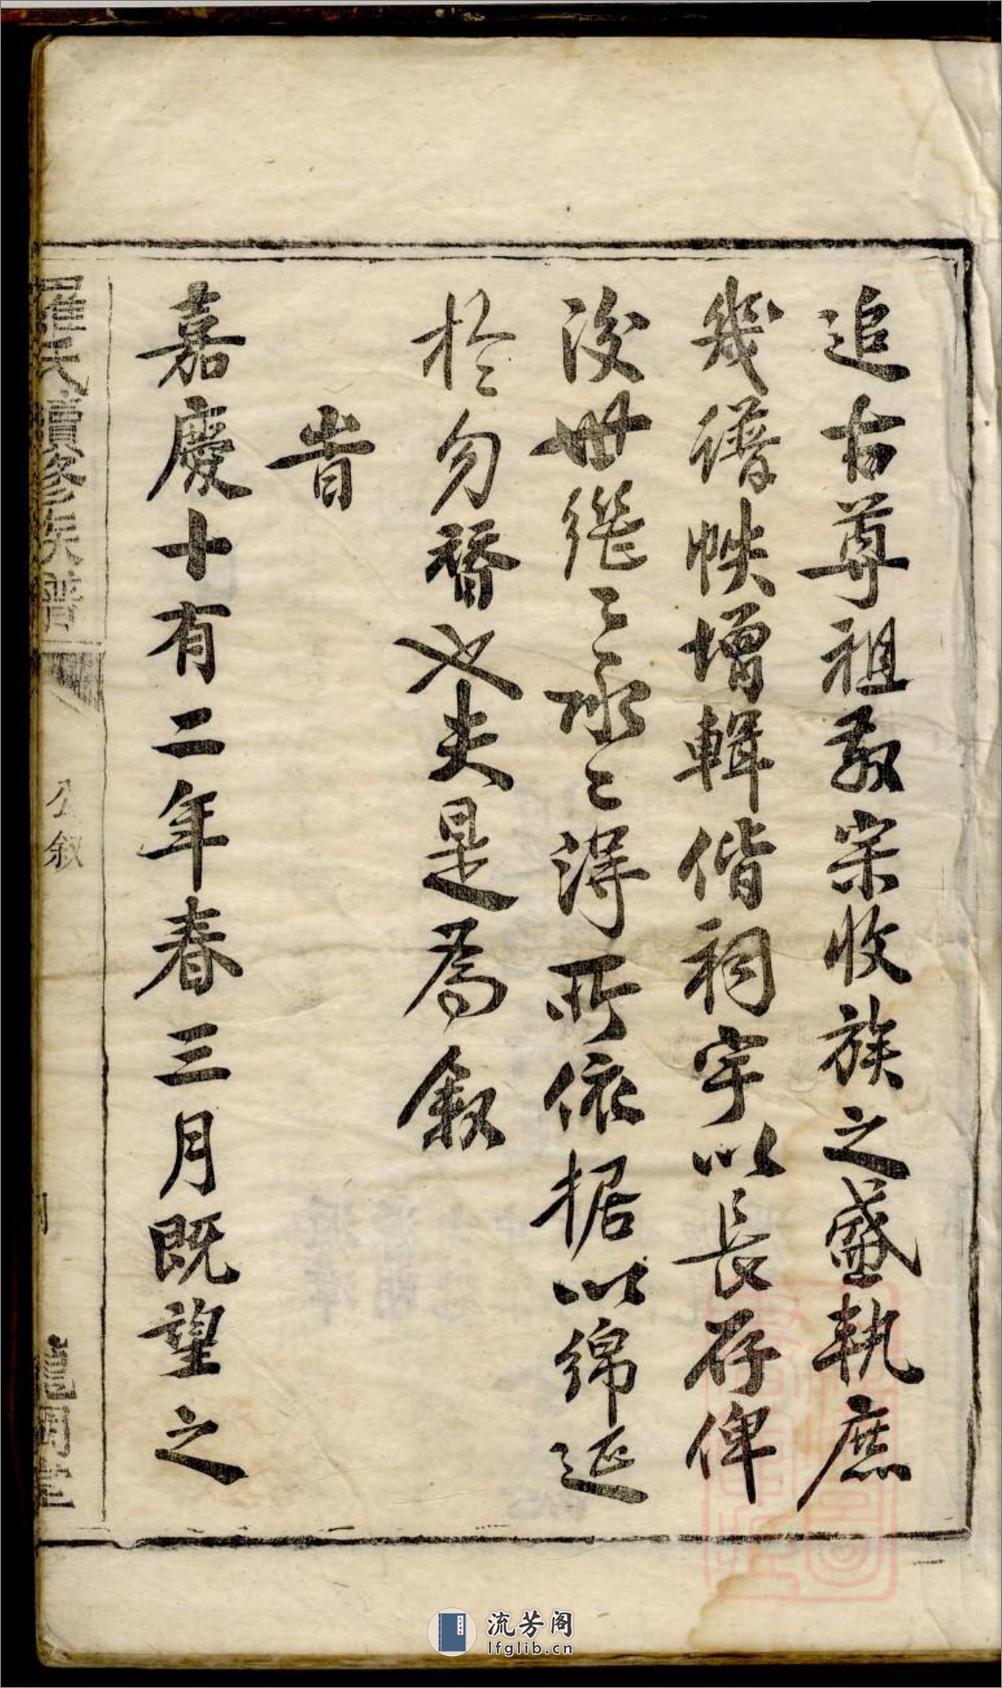 追古尊祖敬宗收族之盛執庶
幾譜帙增輯偕祠宇以長存俾
後世繩〻承〻得所依据以綿延
於勿替也夫是為叙
旹
嘉慶十有二年春三月既望之
羅氏續修族譜
公叙
流芳阁
lfglib.cn